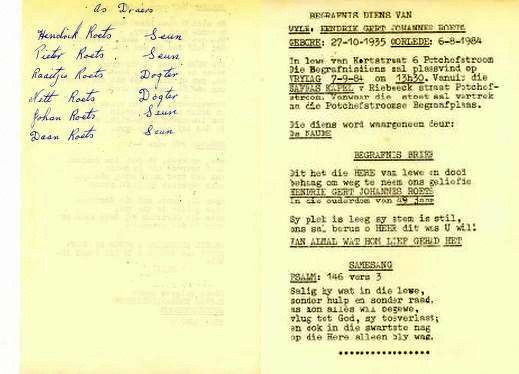 As Draers
Hendrick Roets Seun
Pieter Roets Seun
Raaitjie Roets Dogter
Nett Roets Dogter
Johan Roets Seun
Daan Roets Seun
BEGRAFNIS DIENS VAN
WYLE, HENDRIK GERT JOHANNES ROETS
GEBORE: 27-10-1935 OORLEDE: 6-8-1984
In lewe van Kortstraat 6 Potchefstroom
Die Begrafnisdiens sal plaasvind op
VRYDAG 7-9-84 om 13h30. Vanuit die
SAFFAS KAPEL v Riebeeck straat Potchef-
stroom Vanwaar die stoet sal vertrek
na die Potchefstroomse Begraafplaas.
Die diens word waargeneem deur:
Ds NAUDE
BEGRAFNIS BRIEF
Dit het die HERE van lewe en dood
behaag om weg te neem ons geliefde
HENDRIK GERT JOHANNES ROETS
in die ouderdom van 49 jaar
Sy plek is leeg sy stem is stil,
ons sal berus o HEER dit was U wil
VAN ALMAL WAT HOM LIEF GEHAD HET
SAMESANG
PSALM: 146 vers 3
Salig hy wat in die lewe,
sonder hulp en sonder raad,
as hom alles wil begewe,
vlug tot God, sy toeverlaat;
en ook in die swartste nag
op die Here alleen bly wag.